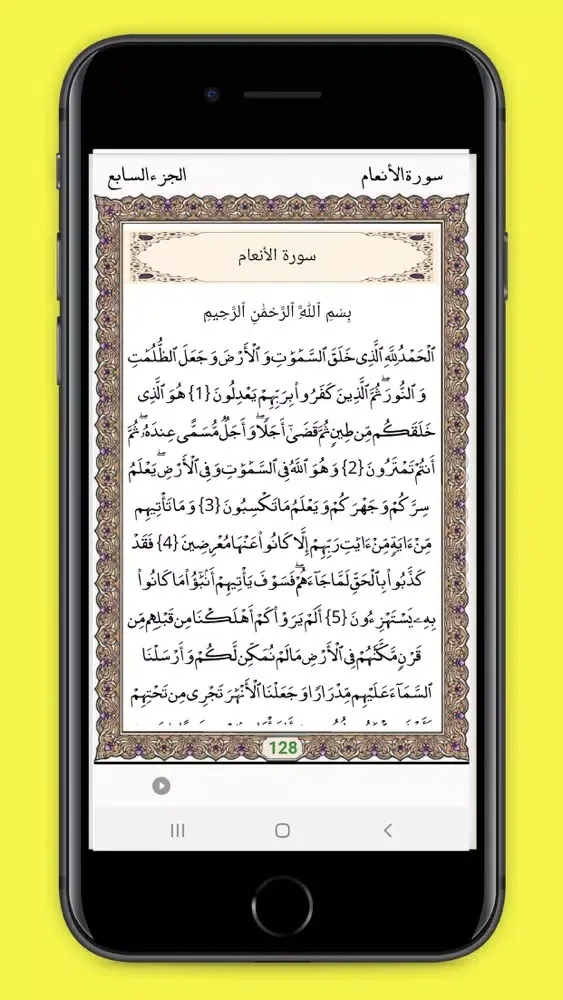 سورة الأنعام
الجزء السابع
سورة الأنعام
بِسْمِ ٱللَّهِ ٱلرَّحْمَٰنِ ٱلرَّحِيمِ
ٱلْحَمْدُ لِلَّهِ ٱلَّذِى خَلَقَ ٱلسَّمَٰوَٰتِ وَٱلْأَرْضَ وَجَعَلَ ٱلظُّلُمَٰتِ
وَٱلنُّورَ ۖ ثُمَّ ٱلَّذِينَ كَفَرُوا۟ بِرَبِّهِمْ يَعْدِلُونَ {1} هُوَ ٱلَّذِى
خَلَقَكُم مِّن طِينٍ ثُمَّ قَضَىٰٓ أَجَلًا ۖ وَأَجَلٌ مُّسَمًّى عِندَهُۥ ۖ ثُمَّ
أَنتُمْ تَمْتَرُونَ {2} وَهُوَ ٱللَّهُ فِى ٱلسَّمَٰوَٰتِ وَفِى ٱلْأَرْضِ ۖ يَعْلَمُ
سِرَّكُمْ وَجَهْرَكُمْ وَيَعْلَمُ مَا تَكْسِبُونَ {3} وَمَا تَأْتِيهِم
مِّنْ ءَايَةٍ مِّنْ ءَايَٰتِ رَبِّهِمْ إِلَّا كَانُوا۟ عَنْهَا مُعْرِضِينَ {4} فَقَدْ
كَذَّبُوا۟ بِٱلْحَقِّ لَمَّا جَآءَهُمْ ۖ فَسَوْفَ يَأْتِيهِمْ أَنۢبَٰٓؤُا۟ مَا كَانُوا۟
بِهِۦ يَسْتَهْزِءُونَ {5} أَلَمْ يَرَوْا۟ كَمْ أَهْلَكْنَا مِن قَبْلِهِم مِّن
قَرْنٍ مَّكَّنَّٰهُمْ فِى ٱلْأَرْضِ مَا لَمْ نُمَكِّن لَّكُمْ وَأَرْسَلْنَا
ٱلسَّمَآءَ عَلَيْهِم مِّدْرَارًا وَجَعَلْنَا ٱلْأَنْهَٰرَ تَجْرِى مِن تَحْتِهِمْ
128